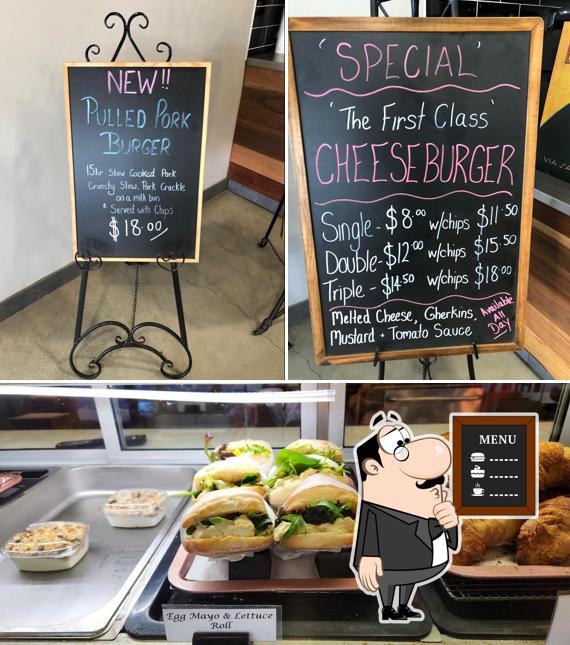 NEW!!
PULLED PORK
BURGER
15hr Slow Cooked Pork
Crunchy Slaw, Pork Crackle
on a milk bun
* Served with Chips
$18.00/
'SPECIAL'
'The First Class'
CHEESEBURGER
Single - $8.00 w/chips $11.50
Double - $12.00 w/chips $15.50
Triple - $14.50 w/chips $18.00
Melted Cheese, Gherkins,
Mustard + Tomato Sauce
Available
All
Day
VIA SA
MENU
Egg Mayo & Lettuce
Roll